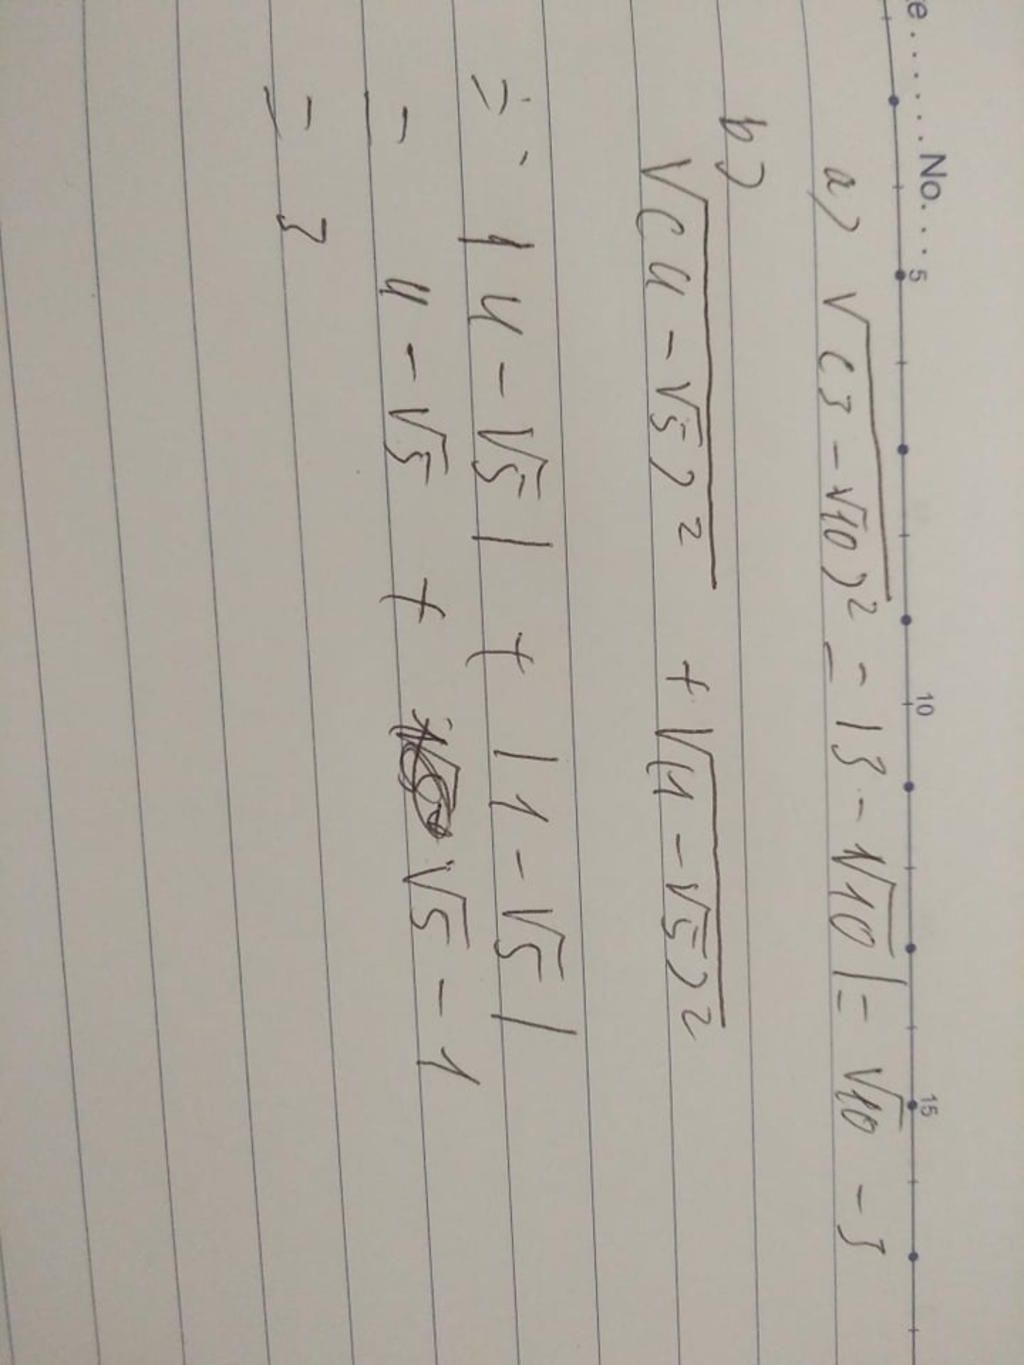 e......No....
5 10 15
a) √(3-√10)² = |3-√10| = √10 - 3
b)
√(4-√5)² + √(1-√5)²
= |4-√5| + |1-√5|
= 4-√5 + √5-1
= 3